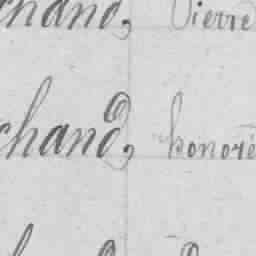 chand, Pierre
chand, honoré